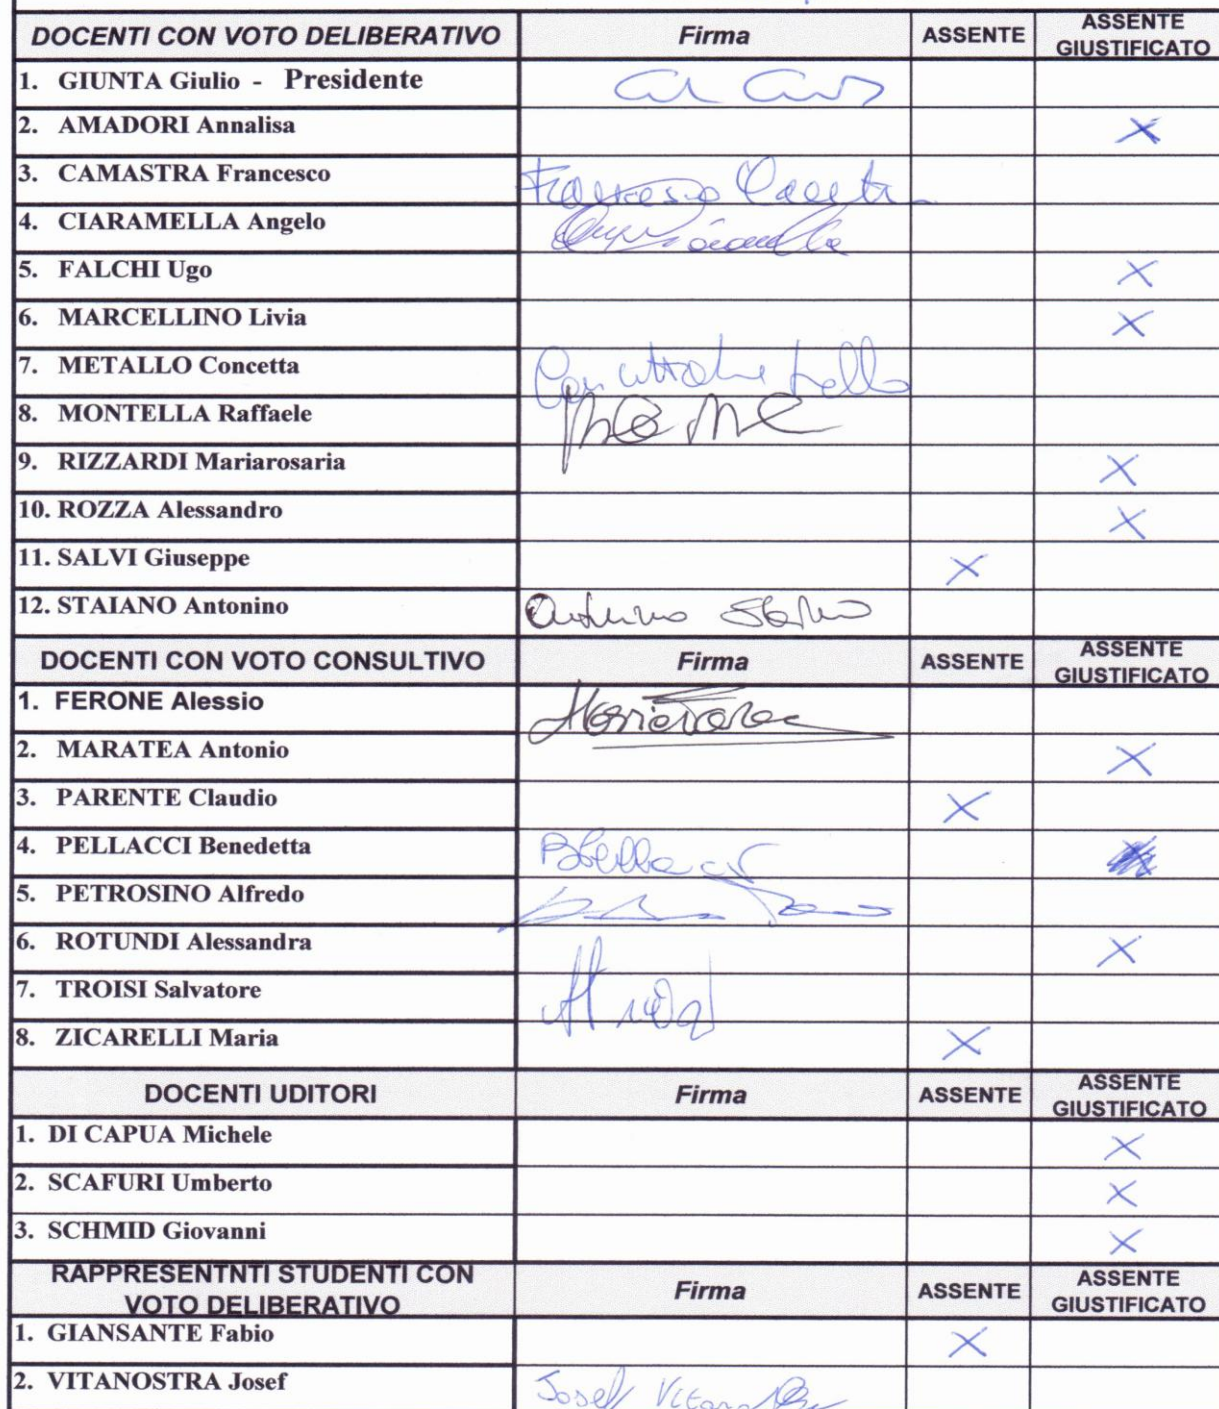 DOCENTI CON VOTO DELIBERATIVO Firma ASSENTE ASSENTE GIUSTIFICATO
1. GIUNTA Giulio - Presidente
2. AMADORI Annalisa X
3. CAMASTRA Francesco Francesco
4. CIARAMELLA Angelo
5. FALCHI Ugo X
6. MARCELLINO Livia X
7. METALLO Concetta
8. MONTELLA Raffaele
9. RIZZARDI Mariarosaria X
10. ROZZA Alessandro X
11. SALVI Giuseppe X
12. STAIANO Antonino Antonino Staiano
DOCENTI CON VOTO CONSULTIVO Firma ASSENTE ASSENTE GIUSTIFICATO
1. FERONE Alessio
2. MARATEA Antonio X
3. PARENTE Claudio X
4. PELLACCI Benedetta
5. PETROSINO Alfredo
6. ROTUNDI Alessandra X
7. TROISI Salvatore
8. ZICARELLI Maria X
DOCENTI UDITORI Firma ASSENTE ASSENTE GIUSTIFICATO
1. DI CAPUA Michele X
2. SCAFURI Umberto X
3. SCHMID Giovanni X
RAPPRESENTNTI STUDENTI CON VOTO DELIBERATIVO Firma ASSENTE ASSENTE GIUSTIFICATO
1. GIANSANTE Fabio X
2. VITANOSTRA Josef Josef Vitanostra